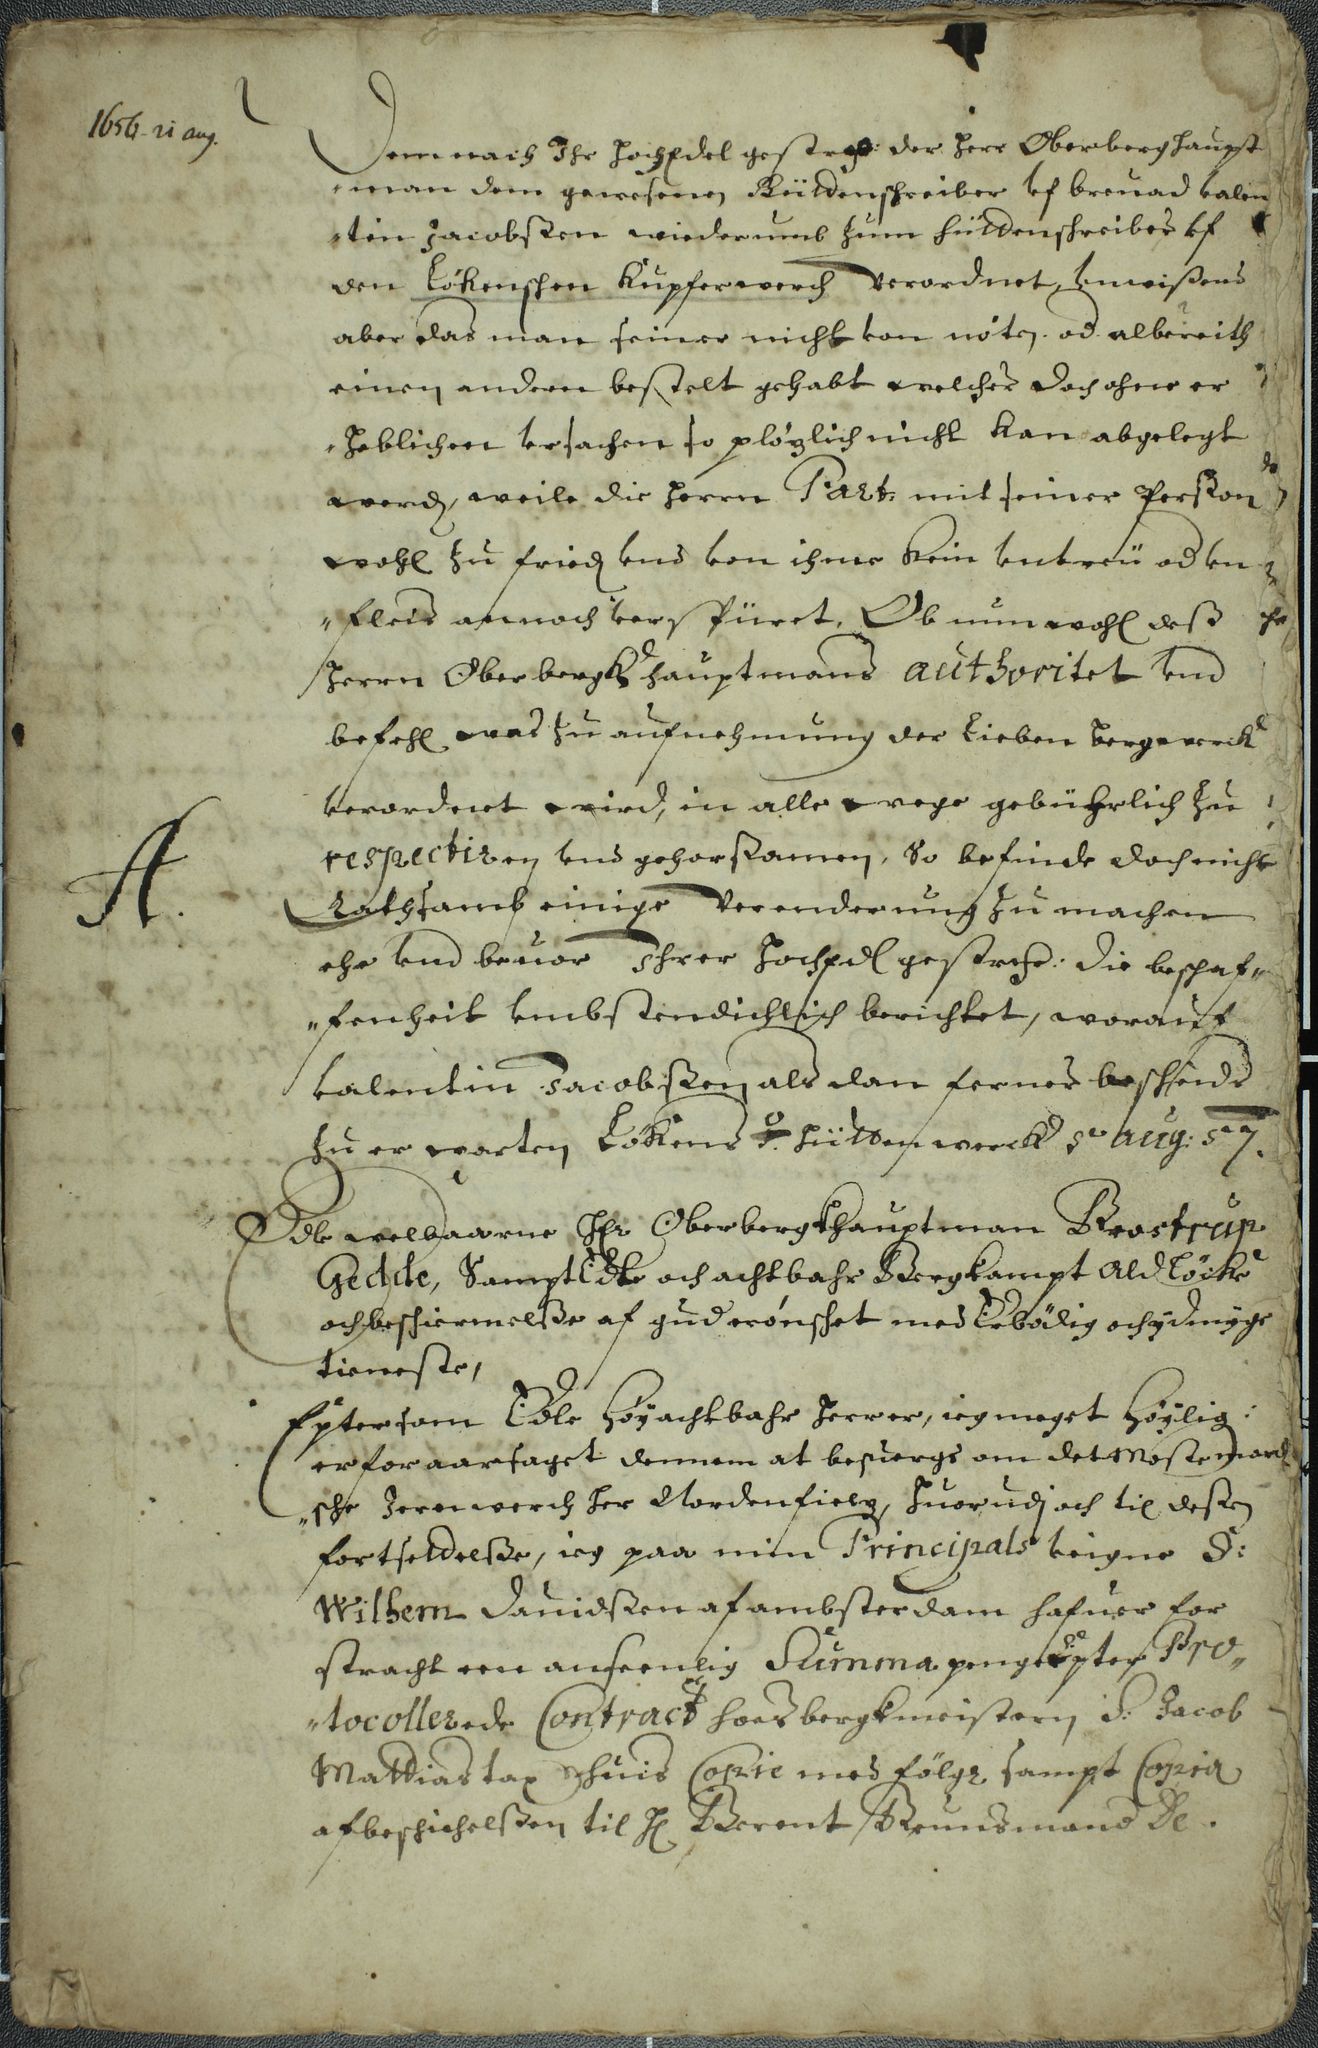 1656 - 21 aug.
Demnach Ihr HochEdel gestreng: der Herr Oberberghaupt
"man dem gewesenen Hüttenschreiber vf valen
"tin Jacobssen wiederumb zum hüttenschreiber vf
den Lökenschen Kupferwerch Verordnet, vnwißens
aber das man seiner nicht von nöten. od albereith
einen andern bestelt gehabt welcher doch ohne er
"heblichen vrsachen so plözlich nicht kan abgelegt
werdn, weile die Herrn Part: mit seiner Persson
wohl zu friedn vnd von ihme kein vntreü od vn
"fleis annoch verspüret. Ob nun wohl deß
Herrn Oberbergkhauptmans authoritet vnd
befehl was zu aufnehmung der Lieben bergwerck
verordnet wird, in alle wege gebührlich zu
respectiren vnd gehorsamen, So befinde doch nicht
Rathsamb einige Verenderung zu machen
A.
ehe vnd beuor Ihrer HochEdl gestreng: die beschaf"
"fenheit vmbstendichlich berichtet, worauf
valentin Jacobssen als dan ferner bescheids
zu erwarten Lökens hüttenwerck d. aug: 57.
Edle welbaarne Her Oberbergkhauptman Brostrup
Gedde, Sampt Edle och achtbahr Bergkampt Ald Löcke
och beschiermelsse af gud erönschet med Erbödig och ydmyge
tieneste,
Epter som Edle Höyachtbahr Herrer, ieg meget höylig
er foraarsaget dennem at besuerge om det Mostemard
"sche Jernwerch her Nordenfields, huorudj och til dessen
fortsettelsse, ieg paa min Principals veigne S:
Wilhem Dauidssen af ambsterdam hafuer for
stracht een anseenlig Summa penge epter Pro"
"tocollerede Contract hoes bergkmeistern S: Jacob
Mattias tax huis Copie med fölger sampt Copia
af beschichelssen til H Berent Brunsmand De.